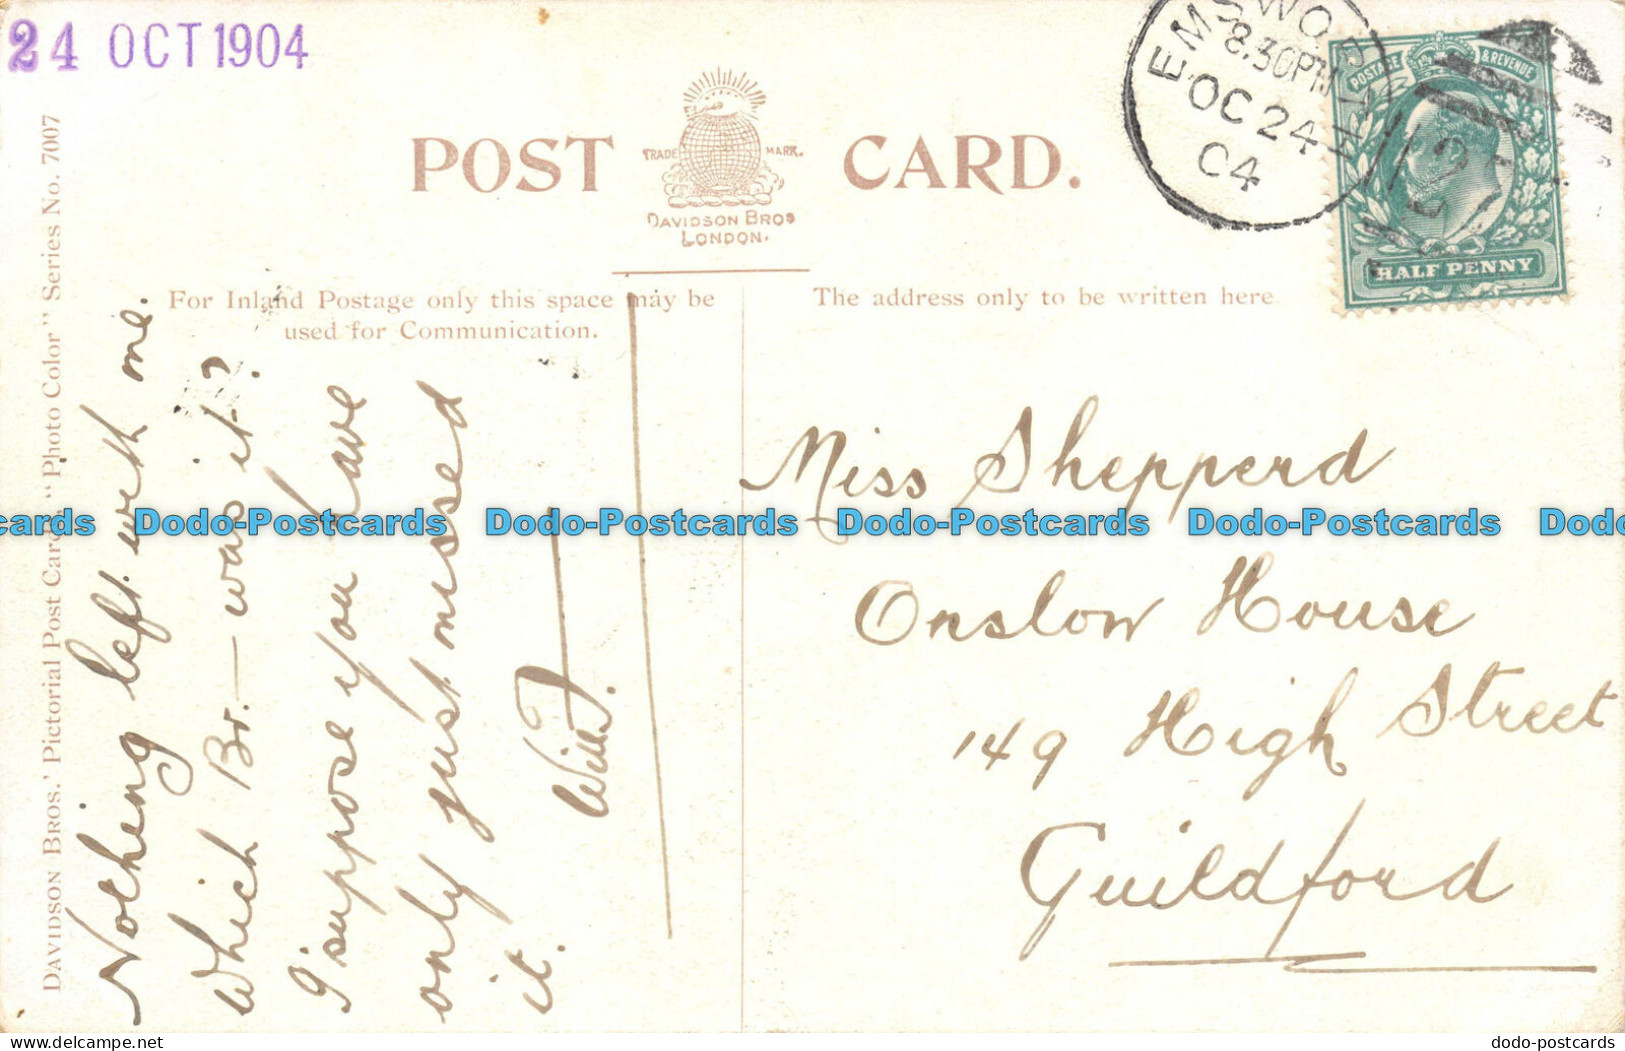 24 OCT 1904
POST CARD.
TRADE MARK.
DAVIDSON BROS
LONDON.
EMSWORTH
8.30PM
OC 24
04
POSTAGE & REVENUE
HALF PENNY
For Inland Postage only this space may be
used for Communication.
The address only to be written here
DAVIDSON BROS.' Pictorial Post Card "Photo Color" Series No. 7007
Nothing left with me.
Which Br. — was it?
I suppose you have
only just missed
it.
Will
Miss Shepperd
Onslow House
149 High Street
Guildford
cards Dodo-Postcards Dodo-Postcards Dodo-Postcards Dodo-Postcards Dodo
www.delcampe.net
dodo-postcards